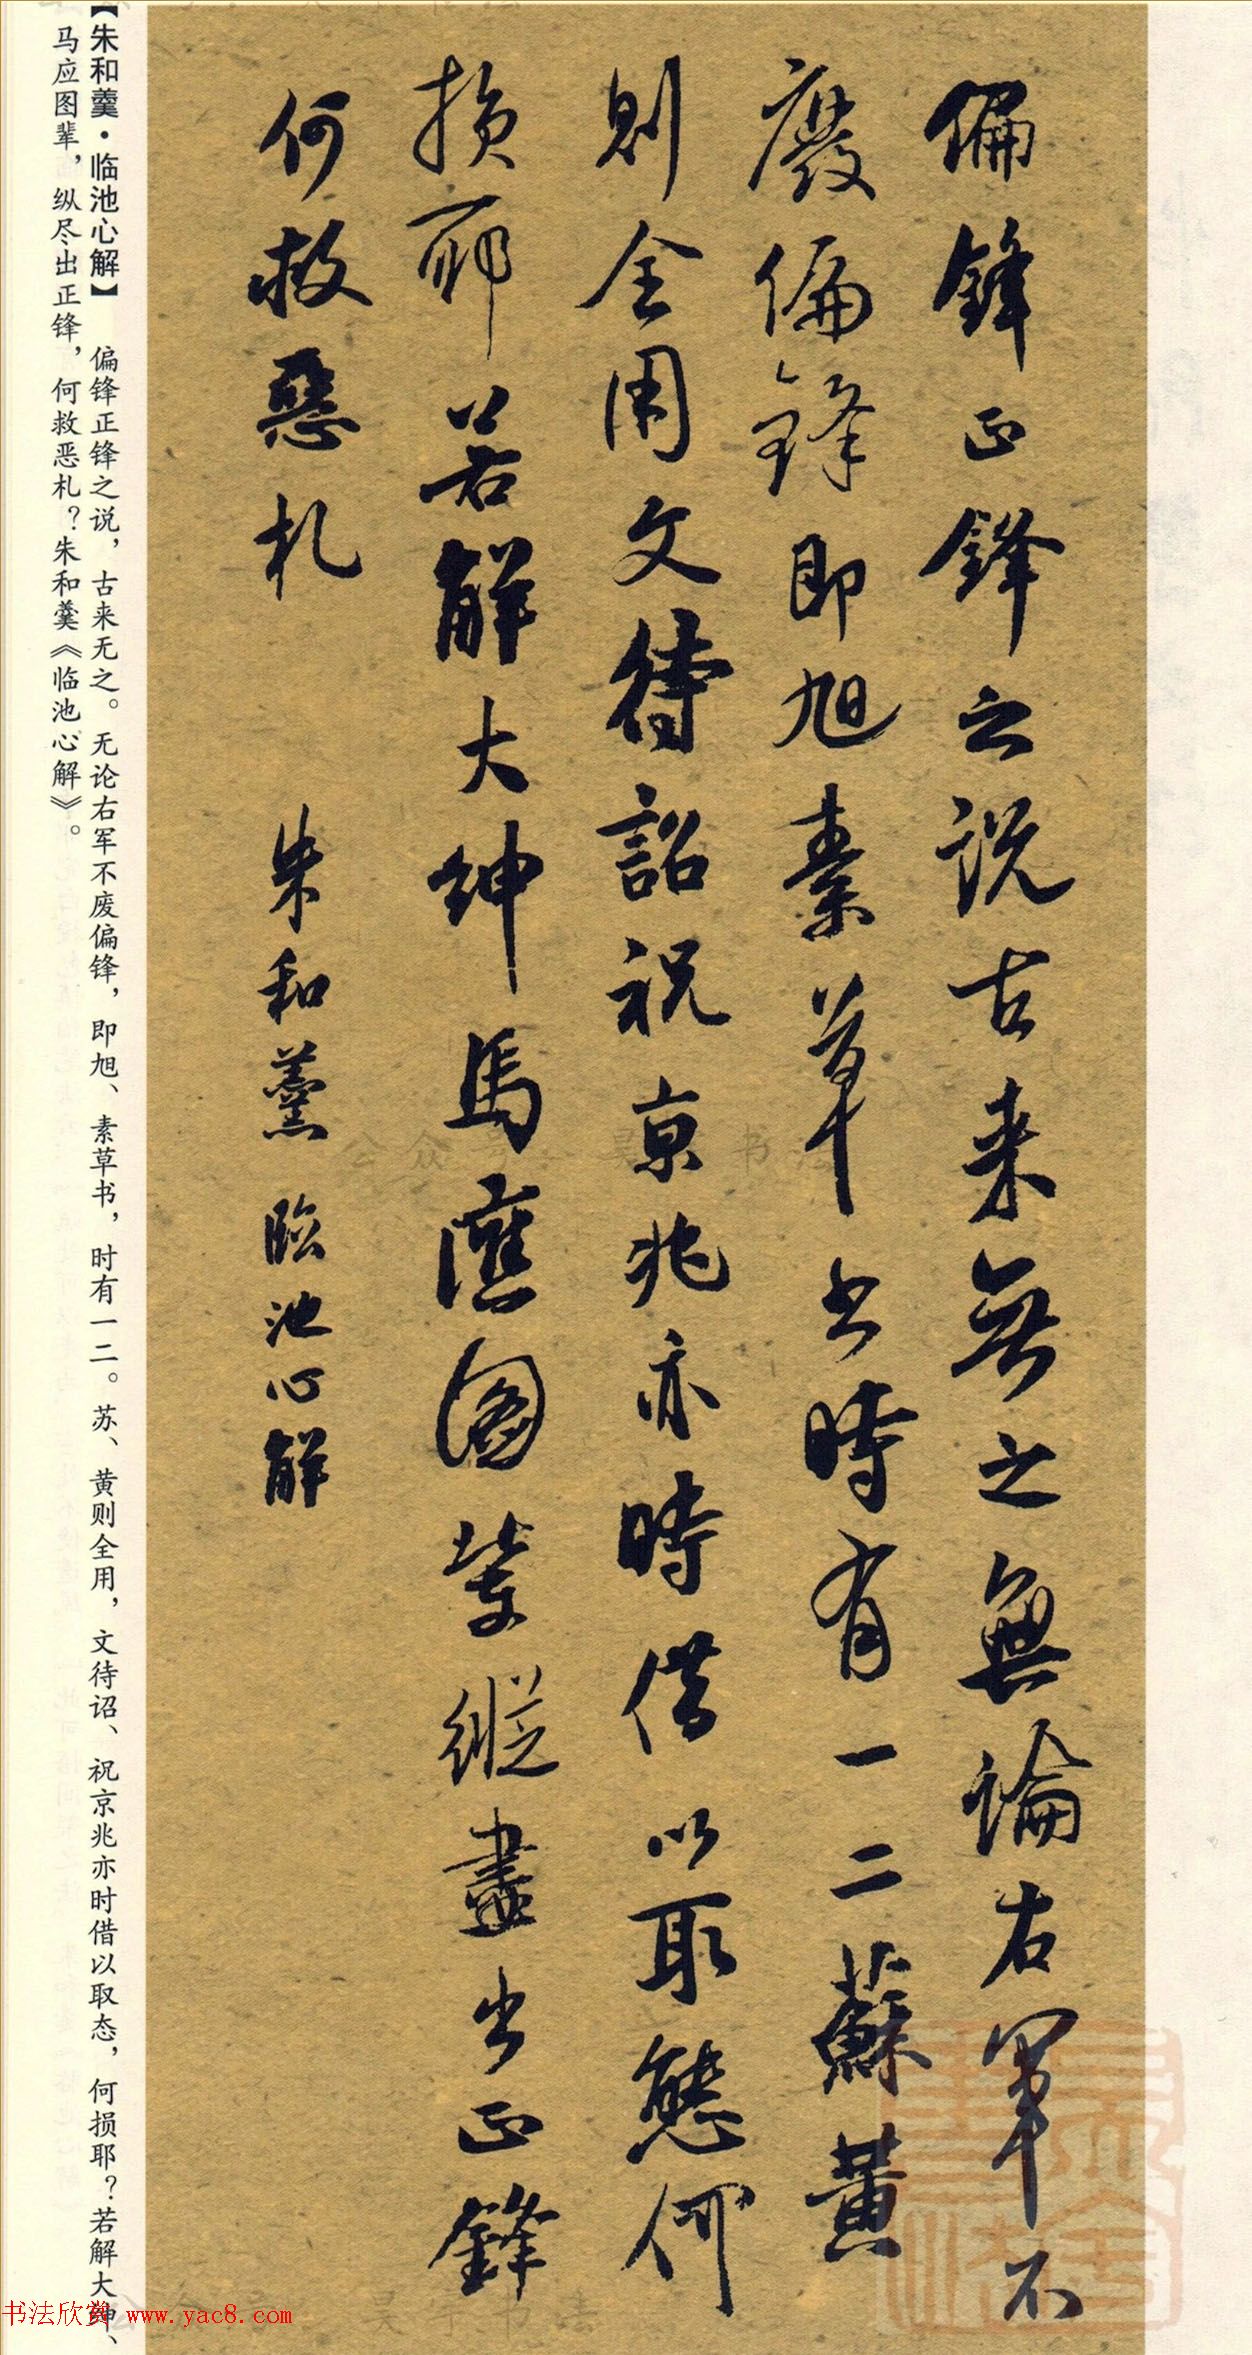 偏鋒正鋒之說古来無之無論右軍不
廢偏鋒即旭素草書時有一二蘇黃
則全用文待詔祝京兆亦時借以取態何
損耶若解大紳馬應圖輩縱盡出正鋒
何救惡札 朱和羹臨池心解
【朱和羹·临池心解】 偏锋正锋之说，古来无之。无论右军不废偏锋，即旭、素草书，时有一二。苏、黄则全用，文待诏、祝京兆亦时借以取态，何损耶？若解大绅、
马应图辈，纵尽出正锋，何救恶札？朱和羹《临池心解》。
书法欣赏 www.yac8.com